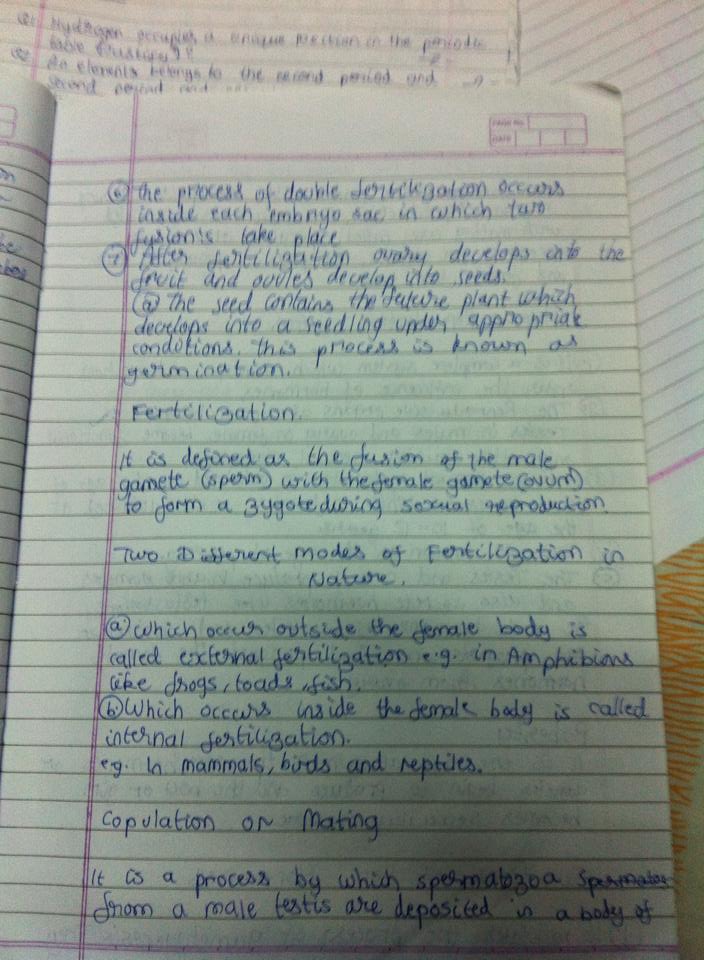 Q1 Hydrogen occupies a unique position in the periodic
table Justify?
Q2 An elements belongs to the second period and
second period and
PAGE NO.
DATE
⑥ the process of double fertilization occurs
inside each embryo sac in which two
fusion's take place
⑦ After fertilization ovary develops into the
fruit and ovules develop into seeds.
ⓐ The seed contains the future plant which
develops into a seedling under appropriate
conditions. This process is known as
germination.
Fertilization.
It is defined as the fusion of the male
gamete (sperm) with the female gamete (ovum)
to form a zygote during sexual reproduction.
Two Different modes of Fertilization in
Nature.
ⓐ Which occur outside the female body is
called external fertilization e.g. in Amphibions
like frogs, toads, fish.
ⓑ Which occurs inside the female body is called
internal fertilization.
eg. In mammals, birds and reptiles.
Copulation or Mating
It is a process by which spermatozoa
from a male testis are deposited in a body of